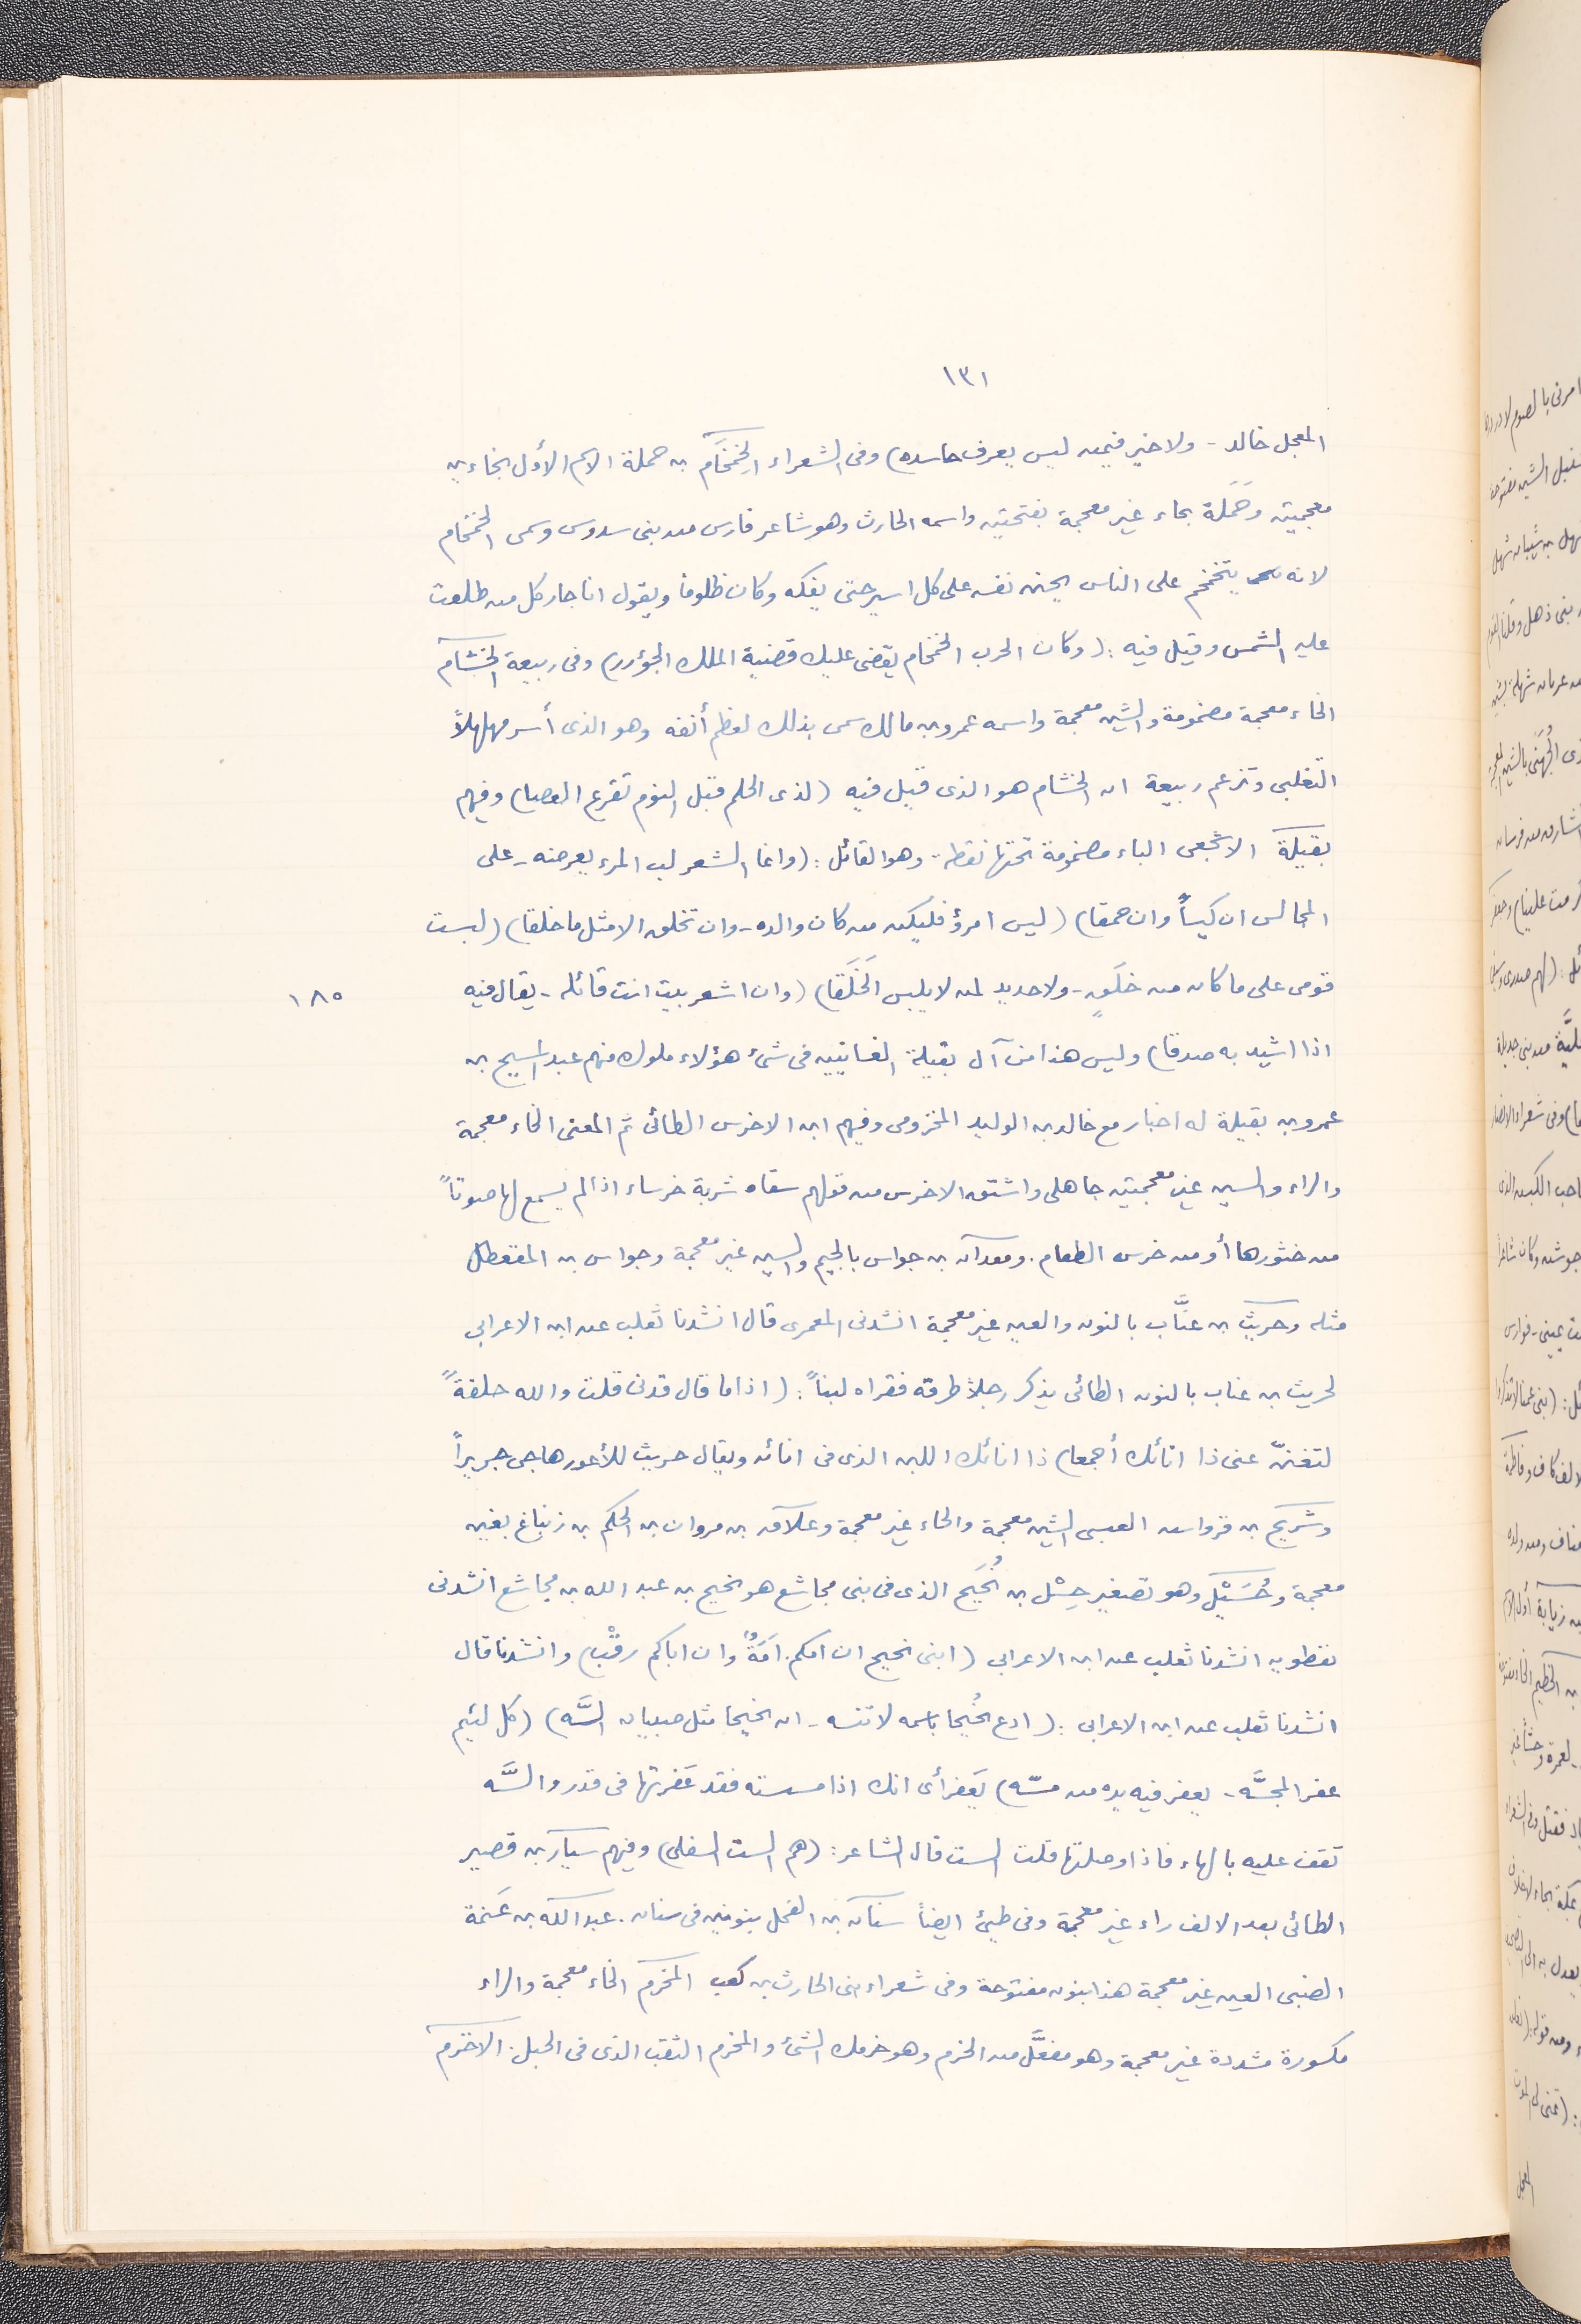 ١٣١
المعجل خالد - ولا خير فيمن ليس يعرف حاسده) وفى الشعراء الخمخام بن حملة الاسم الأول بخاءين
معجمتين وحَمَلة بحاء غير معجمة بفتحتين واسمه الحارث وهو شاعر فارس من بنى سدوس وسمى الخمخام
لانه يتخمخم على الناس يجنى نفسه على كل اسير حتى يفكه وكان ظلوما ويقول انا جار كل من طلعت
عليه الشمس وقيل فيه: (وكان الحرب الخمخام يقضى عليك قضية الملك الجؤور) وفى ربيعة الخشام
الخاء معجمة مضمومة والشين معجمة واسمه عمرو بن مالك سمى بذلك لعظم أنفه وهو الذى أسر مهلهلاً
التغلبى وتزعم ربيعة ان الخشام هو الذى قيل فيه (لذى الحلم قبل اليوم تقرع العصا) وفيهم
بقيلة الاشجعى الباء مضمومة تحتها نقطة وهو القائل: (وانما الشعر لب المرء يعرضه - على
المجالس ان كيساً وان حمقا) (ليس امرؤ فليكن من كان والده - وان تخلق الا مثل ما خلقا) (لبست
قومى على ما كان من خلَقٍ - ولا جديد لمن لا يلبس الخَلَقا) (وان اشعر بيت انت قائله - يقال فيه
١٨٥
اذا اشيد به صدقا) وليس هذا من آل بقيلة الغسانيين فى شئ هؤلاء ملوك منهم عبد المسيح بن
عمرو بن بقيلة له اخبار مع خالد بن الوليد المخزومى وفيهم ابن الاخرس الطائى ثم المعنى الخاء معجمة
والراء والسين غير معجمتين جاهلى واشتق الاخرس من قولهم سقاه شربة خرساء اذا لم يسمع لها صوتاً
من خثورها أو من خرس الطعام. ومعدان بن جواس بالجيم والسين غير معجمة وجواس بن القعطل
مثله وحريث بن عنَّاب بالنون والعين غير معجمة انشدنى المعمرى قال انشدنا ثعلب عن ابن الاعرابى
لحريث بن عناب بالنون الطائى يذكر رجلا طرقه فقراه لبناً: (اذا ما قال قدنى قلت والله حلفةً
لتغننّ عنى ذا انائك أجمعا) ذا انائك اللبن الذى فى انائه ويقال حريث للأعور هاجى جريراً
وشريح بن قرواس العبسى الشين معجمة والحاء غير معجمة وعلاق بن مروان بن الحكم بن زنباغ بغين
معجمة وحُسَيْل وهو تصغير حِسْل بن نُخَيح الذى فى بنى مجاشع هو نخيح بن عبد الله بن مجاشع انشدنى
نفطويه انشدنا ثعلب عن ابن الاعرابى (ابنى نخيح ان امكم أمَةٌ وان اباكم رقْب) وانشدنا قال
انشدنا ثعلب عن ابن الاعرابى: (ادع نُخيحا باسمه لا تنسه - ان نخيحا مثل صبيان السَّه) (كل لئيم
عفر المجسَّه - يعفر فيه يده من مسّه) يَعفر أى انك اذا مسسته فقد عَفرتها فى قذر والسَّه
تقف عليه بالهاء فاذا وصلتها قلت الست قال الشاعر: (هم الست السفلى) وفيهم سيار بن قصير
الطائى بعد الالف راء غير معجمة وفى طيئ ايضاً سنان بن الفحل بنونين فى سنان. عبد الله بن عَنمة
الضبى العين غير معجمة هذا بنون مفتوحة وفى شعراء بنى الحارث بن كعب المخرم الخاء معجمة والراء
مكسورة مشددة غير معجمة وهو مفعَّل من الخرم وهو خرمك الشئ والمخرم الثقب الذى فى الجبل. الاخرم